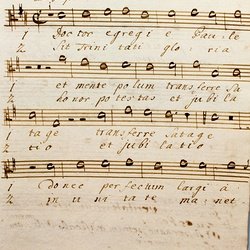 1 Doctor egregi e Paule
2 Sit Trini tati glo: ria
1 et mente polum transferre Sa
2 honor potestas et jubila
1 tage transferre Satage
2 tio et jubilatio
1 donec perfectum largi à
2 in unitate manet